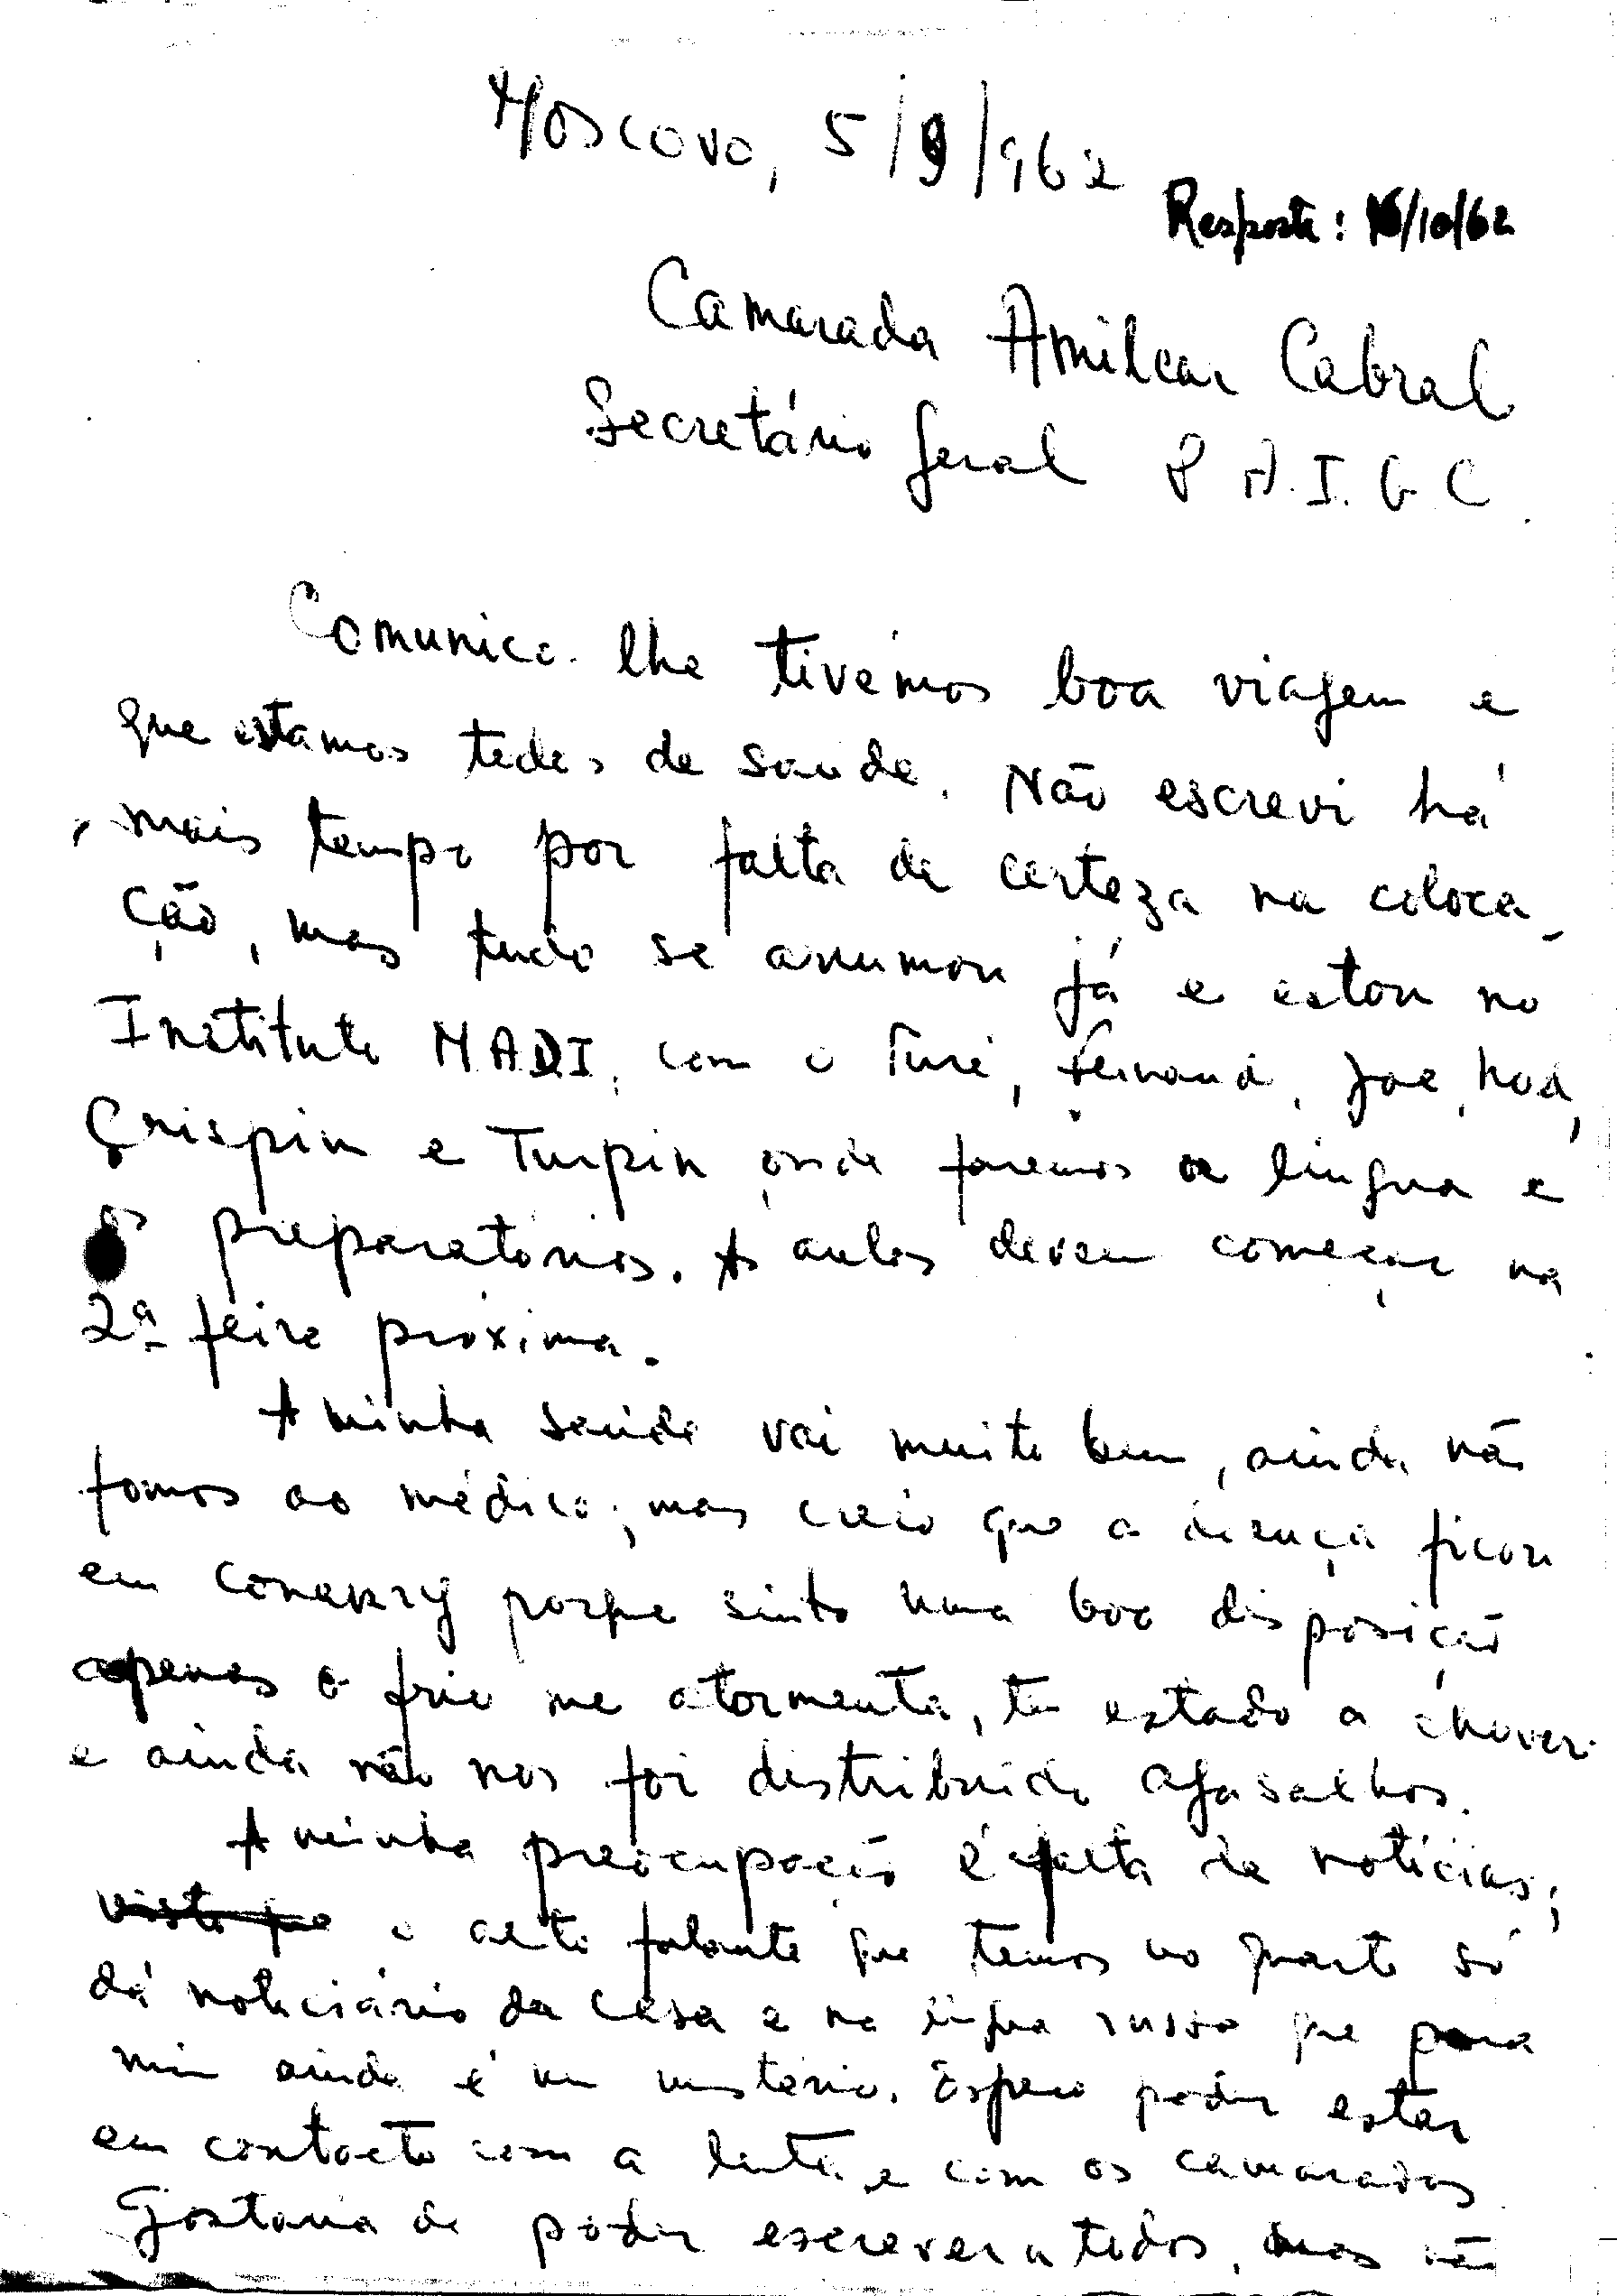 Moscovo, 5/9/962
Resposta: 16/10/62
Camarada Amilcar Cabral
Secretário Geral P.A.I.G.C.
Comunico-lhe tivémos boa viagem e
que estamos todos de saude. Não escrevi há
mais tempo por falta de certeza na coloca-
ção, mas tudo se arrumou já e estou no
Instituto MADI, com o Turé, Fernand, Joe,
Crispim e Turpin onde faremos a lingua e
os preparatórios. As aulas devem começar na
2ª feira próxima.
A minha saúde vai muito bem, ainda não
fomos ao médico, mas creio que a doença ficou
em Conakry porque sinto uma boa disposição
apenas o frio me atormenta, tem estado a chover
e ainda não nos foi distribuido agasalhos.
A minha preocupação é falta de notícias;
visto que o alto falante que temos no quarto só
dá noticiário da casa e na lingua russa que para
mim ainda é um mistério. Espero poder estar
em contacto com a luta e com os camaradas
Gostaria de poder escrever a todos, mas não